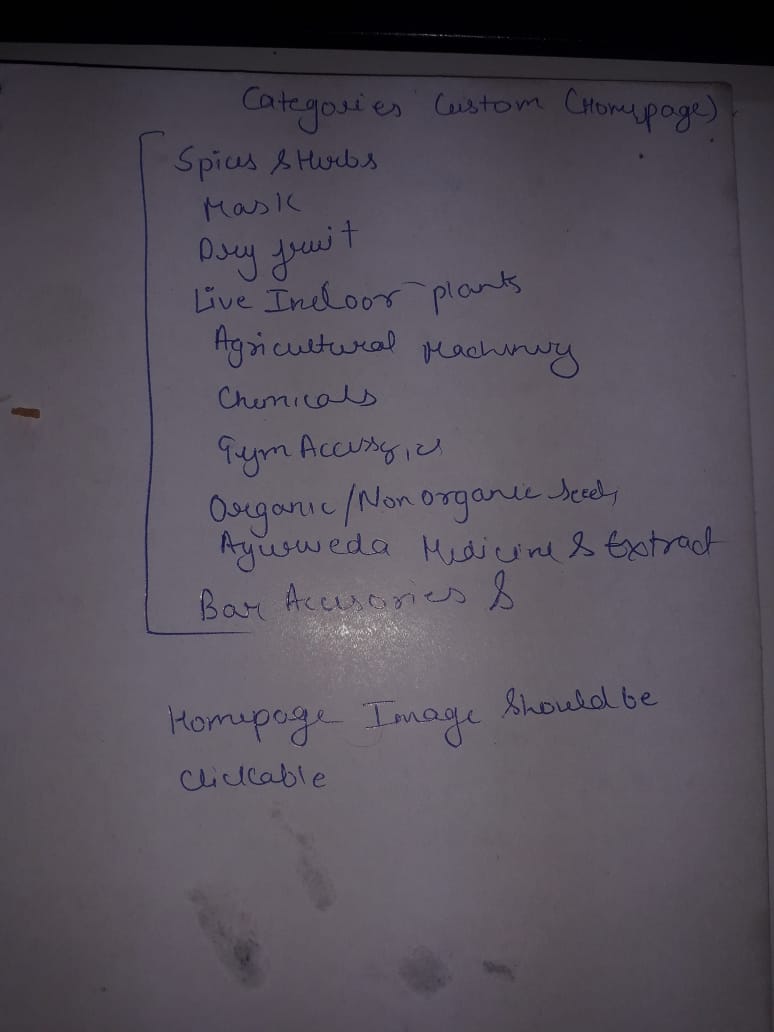 Categories Custom (Homepage)
Spices & Herbs
Mask
Dry fruit
Live Indoor plants
Agricultural Machinery
Chemicals
Gym Accessories
Organic/Non organic Seeds
Ayurweda Medicine & Extract
Bar Accesories &
Homepage Image Should be
Clickable